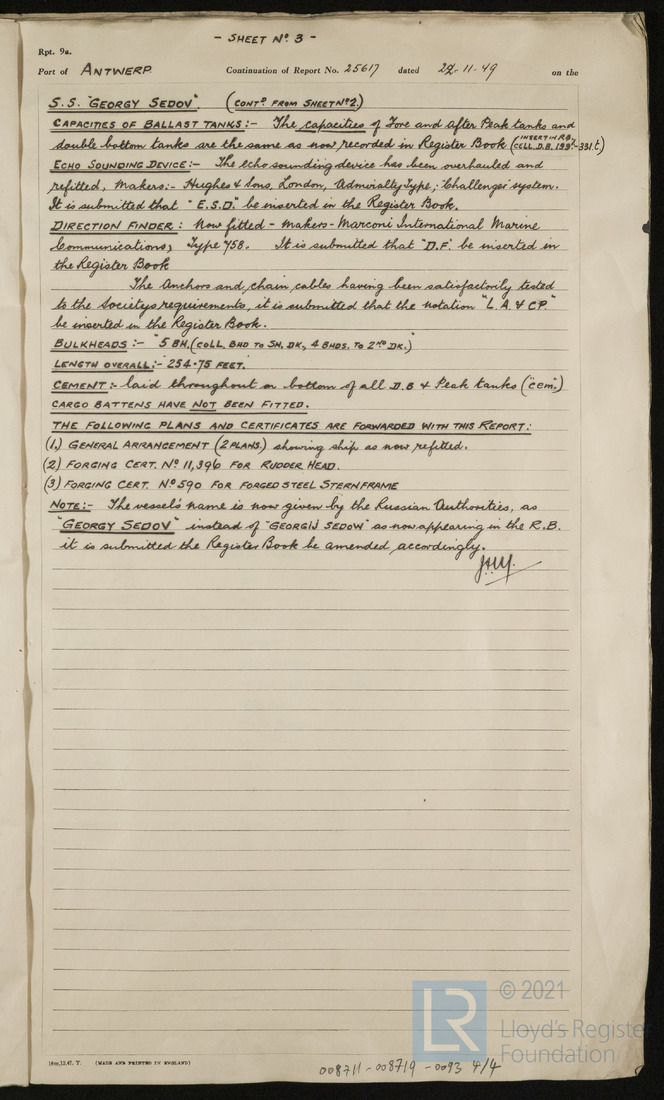 - SHEET Nº 3 -
Rpt. 9a.
Port of ANTWERP Continuation of Report No. 25617 dated 22-11-49 on the
S.S. "GEORGY SEDOV". (CONTD. FROM SHEET Nº2.)
CAPACITIES OF BALLAST TANKS:- The capacities of Fore and After Peak tanks and
double bottom tanks are the same as now recorded in Register Book (INSERT IN R.B. CELL. D.B. 199'-331t)
ECHO SOUNDING DEVICE:- The echo sounding device has been overhauled and
refitted, Makers:- Hughes & Sons, London, Admiralty Type, "Challenger" system.
It is submitted that "E.S.D." be inserted in the Register Book.
DIRECTION FINDER: Now fitted - makers - Marconi International Marine
Communications, Type 758. It is submitted that "D.F." be inserted in
the Register Book
The Anchors and chain cables having been satisfactorily tested
to the Societys requirements, it is submitted that the notation "L.A. & CP."
be inserted in the Register Book.
BULKHEADS:- "5 BH. (COLL. BHD TO SH. DK., 4 BHDS. TO 2ND DK.)"
LENGTH OVERALL:- 254.75 FEET.
CEMENT:- laid throughout on bottom of all D.B & Peak tanks ("cem.")
CARGO BATTENS HAVE NOT BEEN FITTED.
THE FOLLOWING PLANS AND CERTIFICATES ARE FORWARDED WITH THIS REPORT:
(1,) GENERAL ARRANGEMENT (2 PLANS.) showing ship as now refitted.
(2) FORGING CERT. Nº 11,396 FOR RUDDER HEAD.
(3) FORGING CERT. Nº 590 FOR FORGED STEEL STERNFRAME
NOTE:- The vessel's name is now given by the Russian Authorities, as
"GEORGY SEDOV" instead of "GEORGIJ SEDOW" as now appearing in the R.B.
it is submitted the Register Book be amended accordingly.
(MADE AND PRINTED IN ENGLAND)
008711-008719-0093 4/4
LR © 2021
Lloyd's Register
Foundation